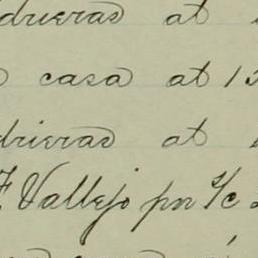 drieras at
casa at 15
drieras at
F. Vallejo por s/c